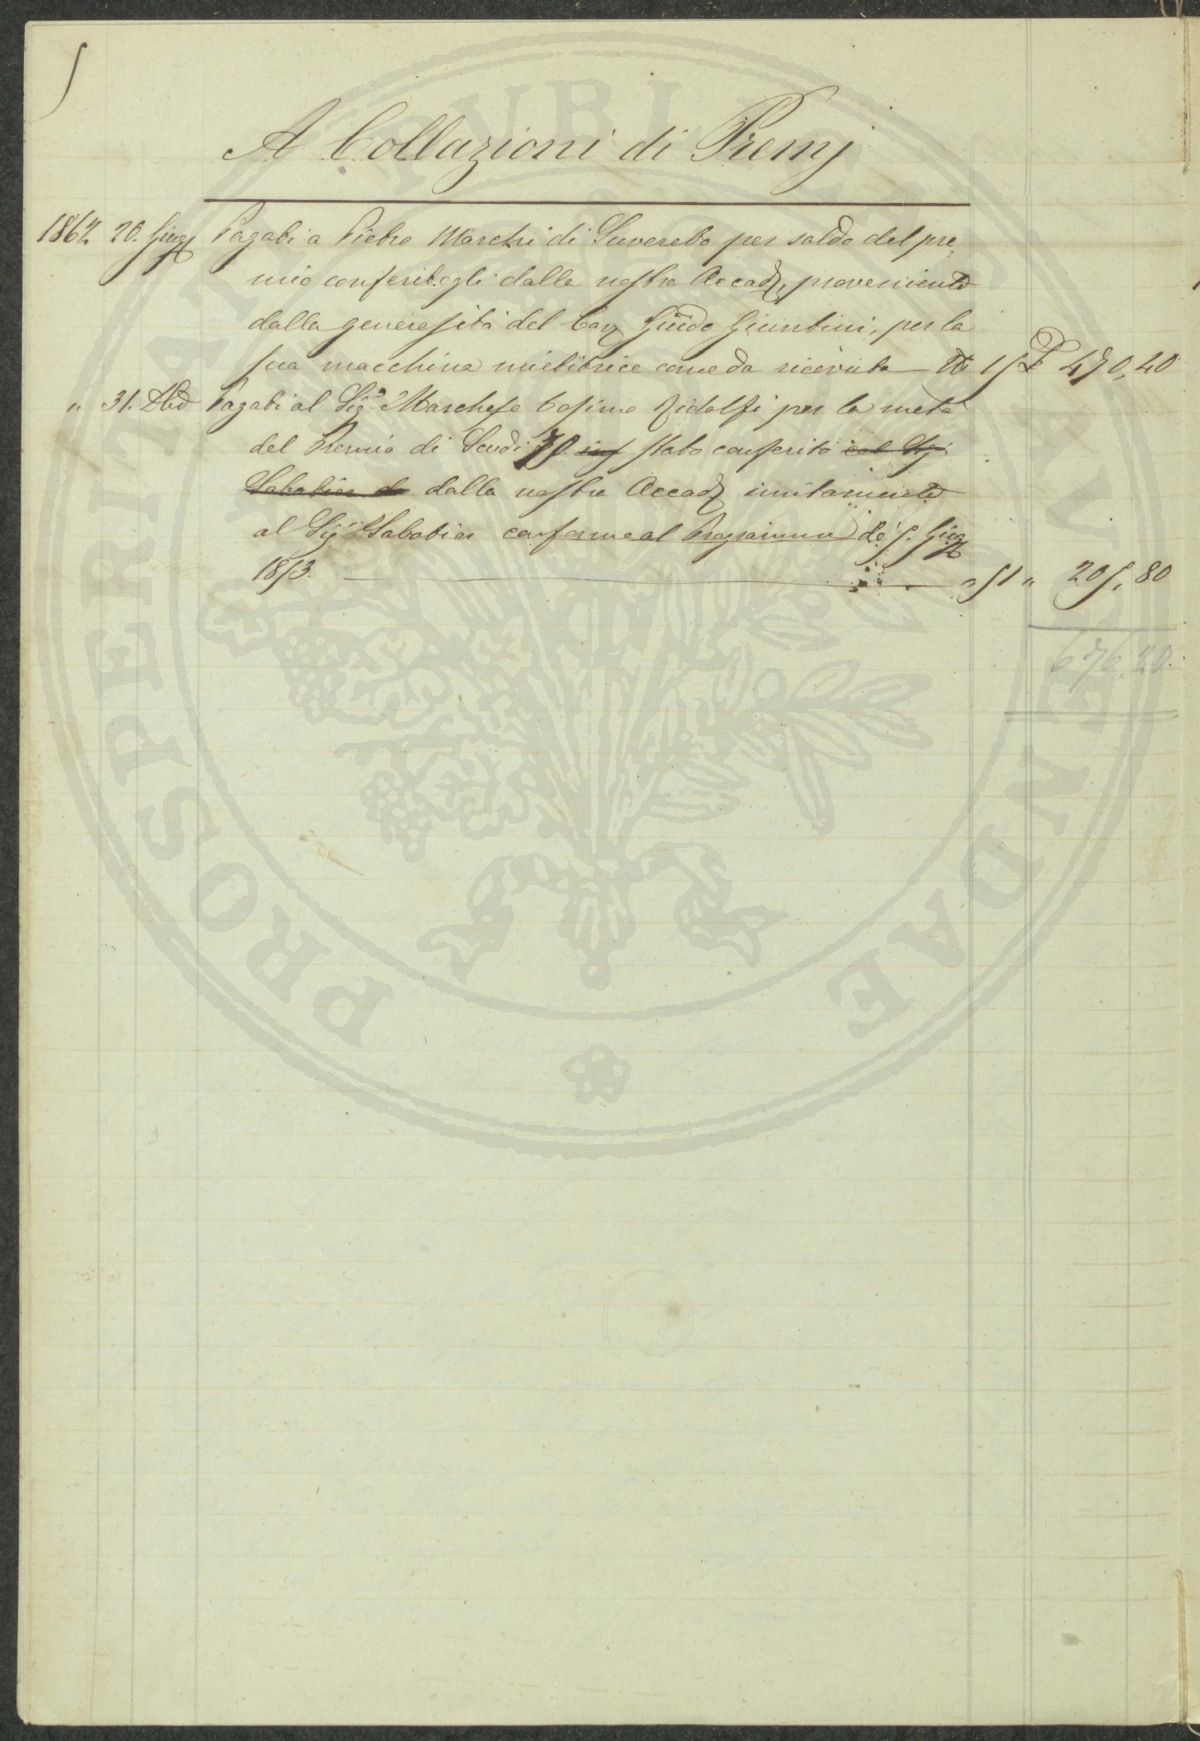 5
A Collazioni di Premj
1862 20. Giug. Pagati a Pietro Marchi di Suvereto per saldo del pre=
mio conferitogli dalla nostra Accad., proveniente
dalla generosità del Cav. Guido Giuntini, per la
sua macchina mietitrice come da ricevuta — N 15 £ 470,40
" 31. Dbre Pagati al Sig. Marchese Cosimo Ridolfi per la metà
del Premio di Scudi 70 stato conferito
Sabatier dalla nostra Accad. unitamente
al Sig. Sabatier conforme al Programma de' 5. Giug.
1853. — " 51 " 205,80
676,20
PROSPERITATI PUBLICAE AUGENDAE